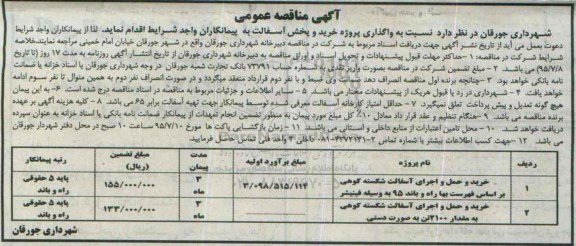 آگهی مناقصه عمومی
شهرداری جورقان در نظر دارد نسبت به واگذاری پروژه خرید و پخش آسفالت به پیمانکاران واجد شرایط اقدام نماید. لذا از پیمانکاران واجد شرایط
دعوت بعمل می آید از تاریخ نشر آگهی جهت دریافت اسناد مربوط به شرکت در مناقصه دبیرخانه شهرداری جورقان واقع در شهر جورقان خیابان امام خمینی مراجعه نمایند.خلاصه
شرایط شرکت در مناقصه: ۱- حداکثر مهلت قبول پیشنهادات و تحویل اسناد و اوراق مناقصه به دبیرخانه شهرداری جورقان از تاریخ انتشار آگهی روزنامه به مدت ۱۷ روز (تا تاریخ
۹۵/۷/۸) می باشد. ۲- مبلغ تضمین شرکت در مناقصه بصورت واریز نقدی به شماره حساب ۷۳۷۹۱ بانک تجارت شعبه جورقان در وجه شهرداری جورقان یا اسناد خزانه یا ضمانت
نامه بانکی میباشد. ۳- چنانچه برنده اول مناقصه انصراف دهد سپرده وی ضبط و با نفر دوم قرارداد منعقد میگردد و در صورت انصراف نفر دوم به همین منوال تا نفر سوم ادامه
خواهد یافت. ۴- شهرداری در رد یا قبول هریک از پیشنهادات مختار می باشد. ۵- سایر اطلاعات و جزئیات مربوط به مناقصه در اسناد مناقصه درج شده است. ۶- به این پیمان
هیچ گونه تعدیل و پیش پرداخت تعلق نمیگیرد. ۷- حداقل امتیاز کارخانه آسفالت معرفی شده توسط پیمانکار جهت تهیه آسفالت برابر ۶۵ می باشد. ۸- کلیه هزینه آگهی بر عهده
برنده مناقصه می باشد. ۹- هنگام تنظیم و عقد قرار داد معادل ۱۰٪ کل مبلغ مورد پیمان به منظور تضمین انجام تعهدات از پیمانکار ضمانت نامه بانکی یا اسناد خزانه به عنوان سپرده
دریافت خواهد شد. ۱۰- محل تامین اعتبارات از منابع داخلی و استانی می باشند. ۱۱- زمان بازگشایی پاکت ها مورخ ۹۵/۷/۱۰ ساعت ۱۰ صبح در محل دفتر شهردار جورقان
می باشد. ۱۲- جهت کسب اطلاعات بیشتر با شماره تماس ۲-۰۸۱-۳۴۲۷۲۱۴۱ داخلی ۴ واحد فنی تماس حاصل فرمایید.
ردیف نام پروژه مبلغ برآورد اولیه مدت پیمان مبلغ تضمین (ریال) رتبه پیمانکار
۱ خرید و حمل و اجرای آسفالت شکسته کوهی بر اساس فهرست بها راه و باند ۹۵ به وسیله فینیشر ۳/۰۹۸/۵۱۵/۱۱۴ ۳ ماه ۱۵۵/۰۰۰/۰۰۰ پایه ۵ حقوقی راه و باند
۲ خرید و حمل و اجرای آسفالت شکسته کوهی به مقدار ۳۱۰۰تن به صورت دستی ۳ ماه ۱۳۳/۰۰۰/۰۰۰ پایه ۵ حقوقی راه و باند
شهرداری جورقان